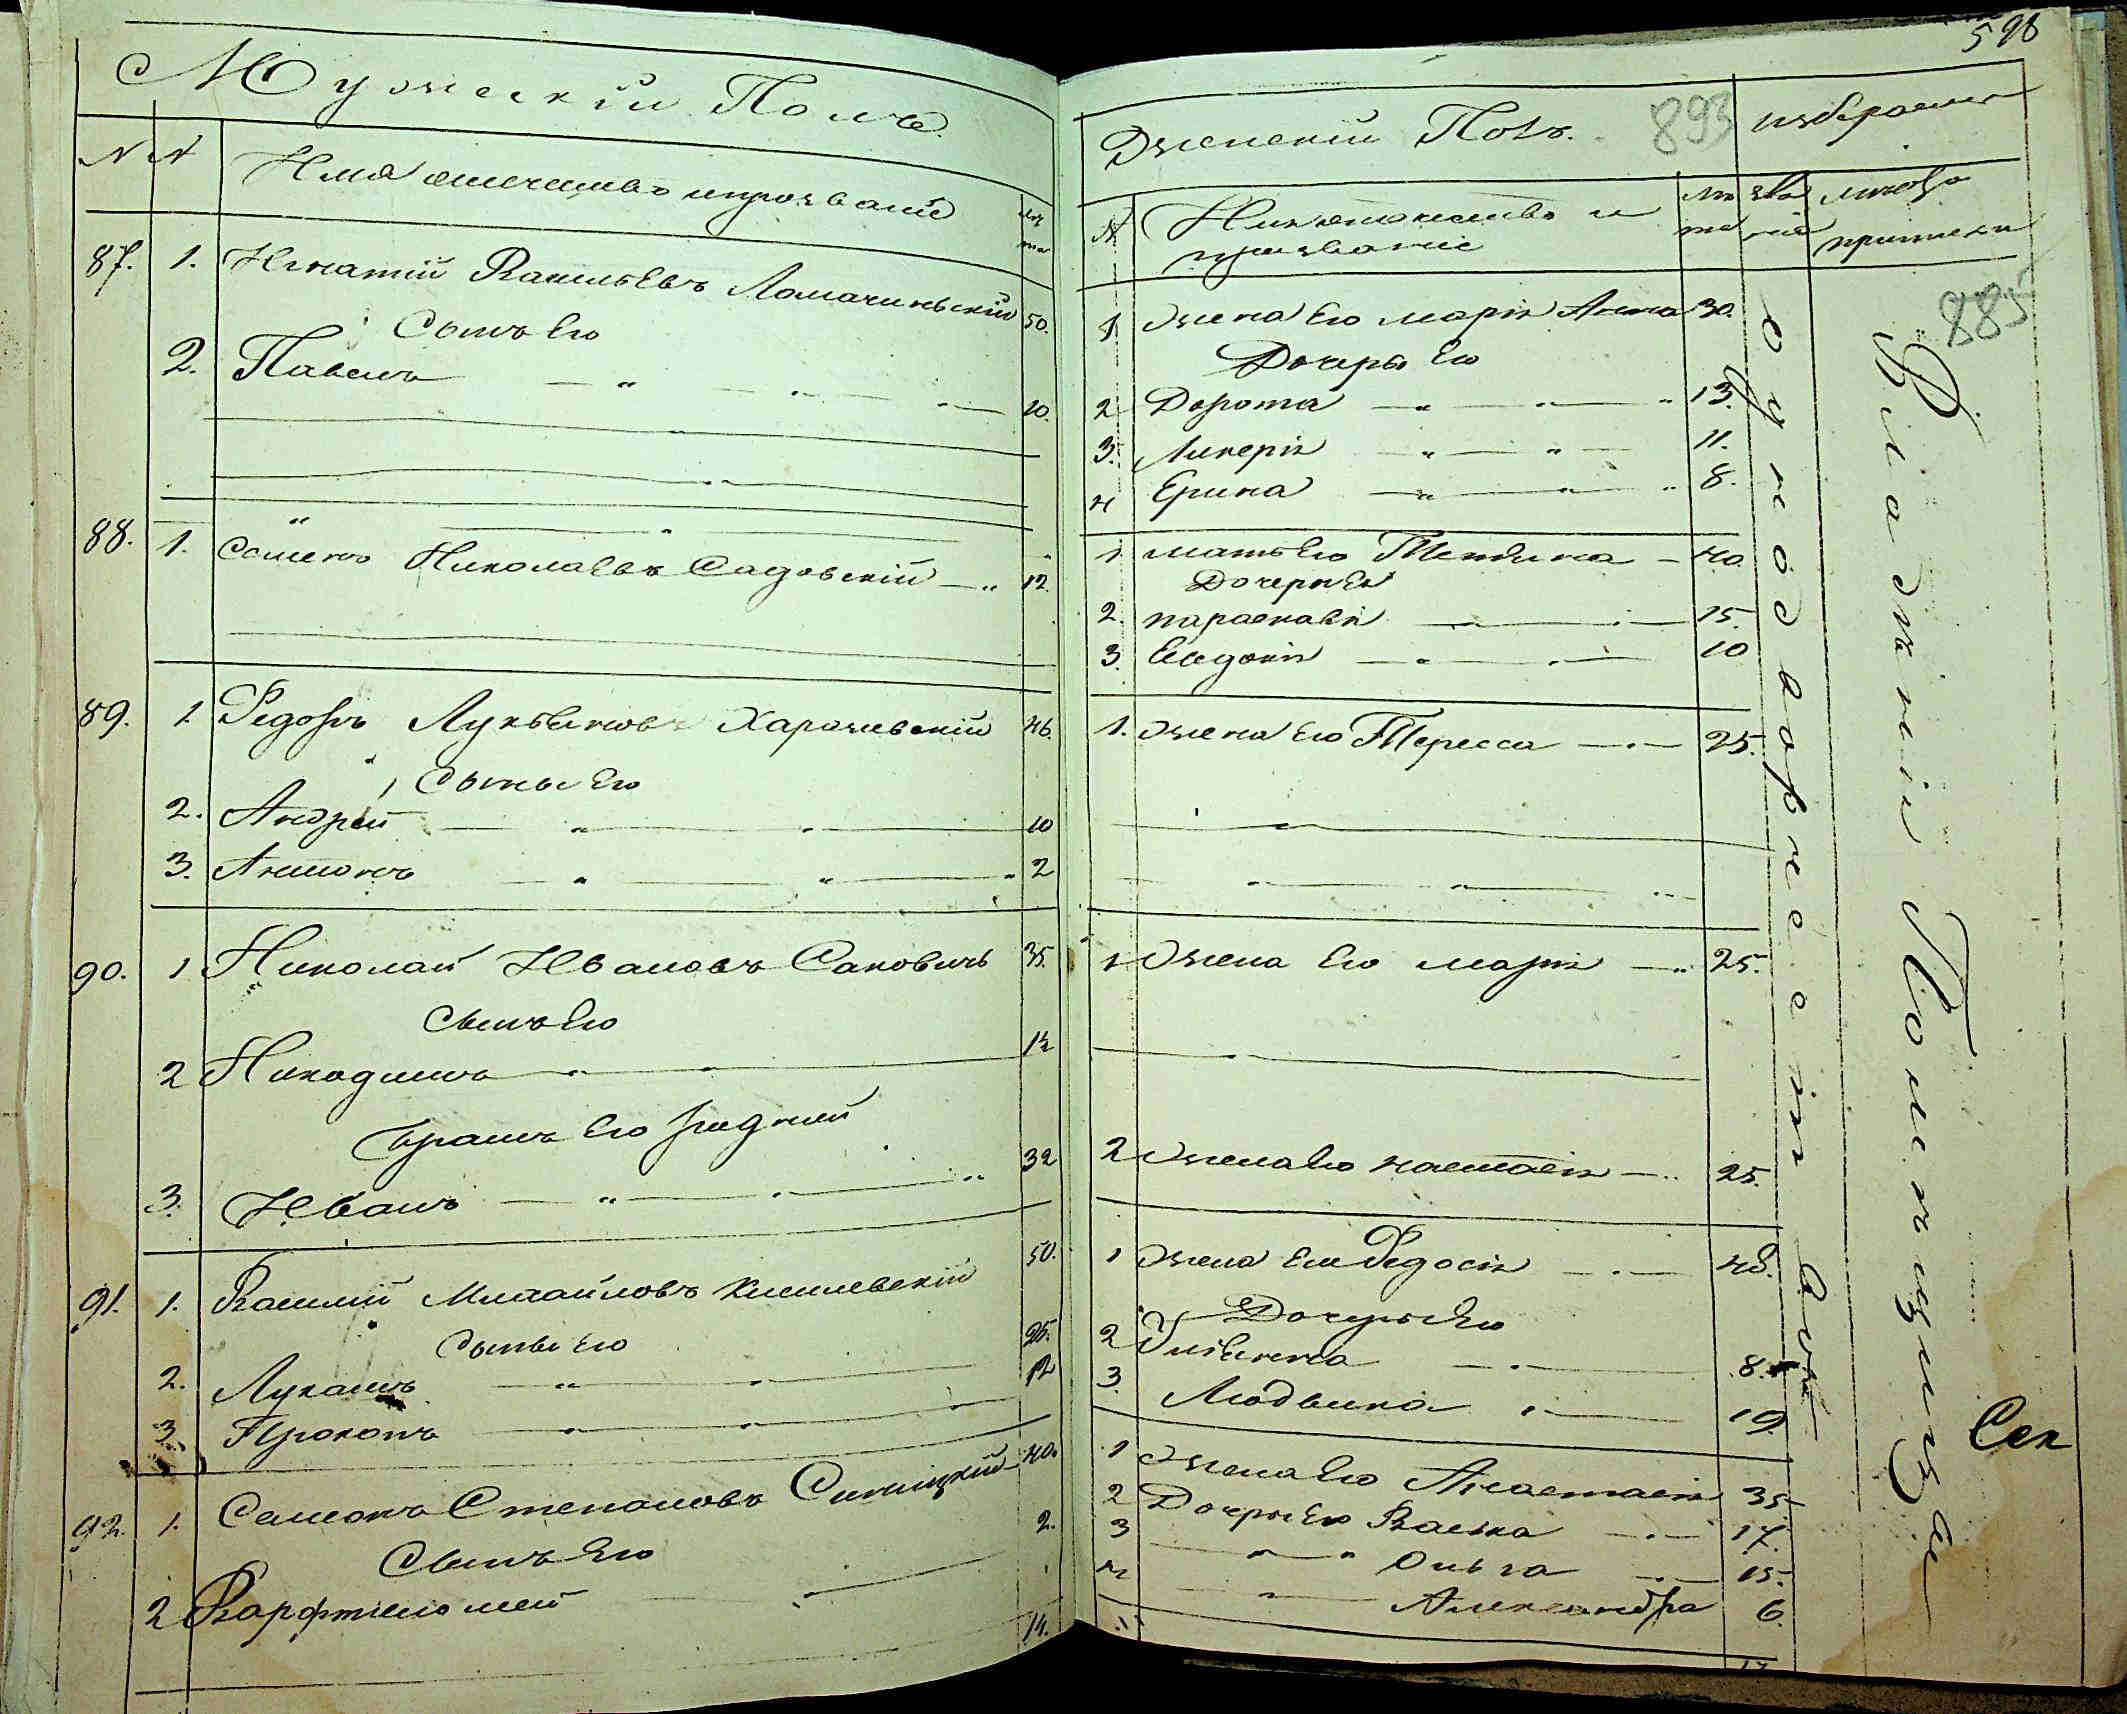 Мужескій Полъ.
N N
Имя отечество и прозваніе
лѣта
87. 1. Игнатій Васильевъ Ломачиньскій 50.
Сынъ Его
2. Павелъ 10.
88. 1. Семенъ Николаевъ Садовскій 12.
89. 1. Федоръ Лукьяновъ Харачевскій 46.
Сыны Его
2. Андрей 10
3. Антонъ 2
90. 1 Николай Ивановъ Саковичъ 35.
Сынъ Его
2 Никодимъ
Братъ Его родней
3. Иванъ 32
91. 1. Василій Михайловъ Киселевскій 50.
Сыны Его
2. Лукашъ 25.
3. Прокопъ 12
92. 1. Семенъ Степановъ Синицкій 40.
Сынъ Его
2 Варфтиеломей 2.
14.
598
Женскій Полъ. 893 избраеніи
N Имя отечество и прозваніе
лѣта званіе
885
1 жена Его марія Анна 30.
Дочери Его
2 Дорота 13.
3. Ликерія 11.
4 Ерина 8.
1 мать Его Тетяна 40.
Дочери Ея
2. параскавія 15.
3. Евдокія 10
1. жена Его Тересса 25.
1 жена Его марія 25.
2 жена Его настасія 25.
1 жена Его Федосія 48.
Дочери Его
2 Ульянна 8.
3. Людвика 19.
1 жена Его Анастасія 35
2 Дочери Его Васька 17.
3 Ольга 15.
4 Александра 6.
однодворческіи
Сек